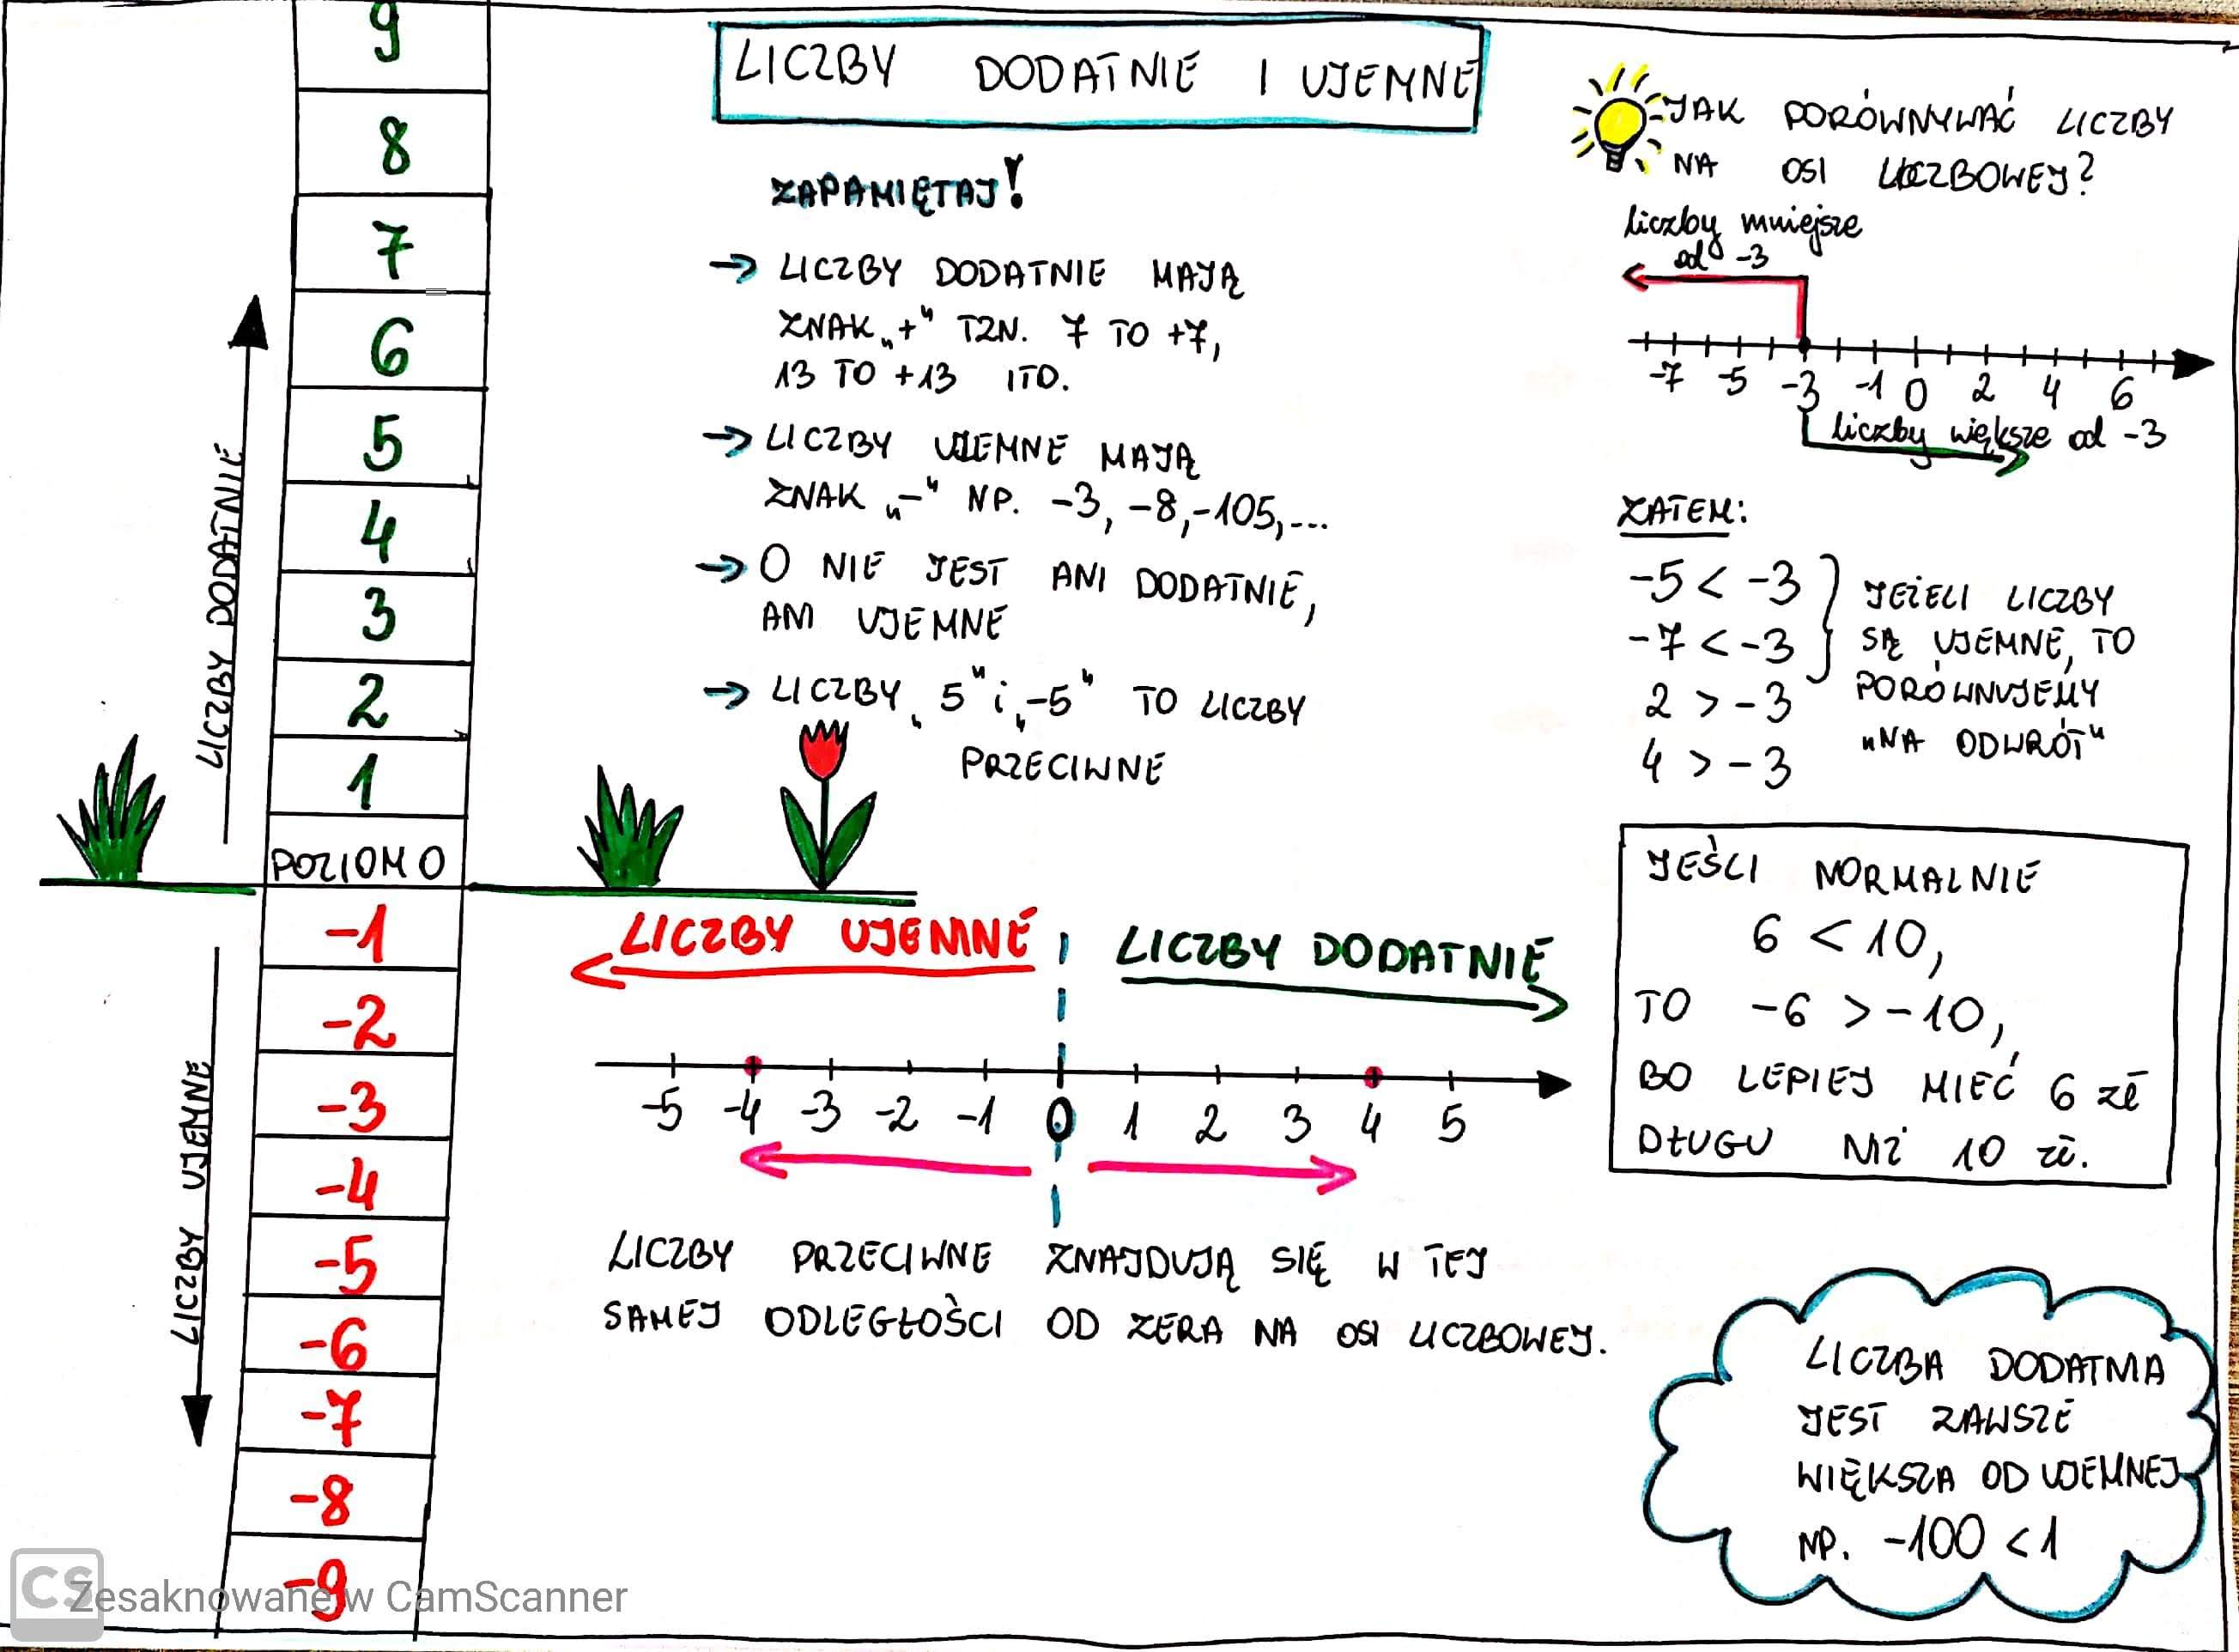 LICZBY DODATNIE I UJEMNE
9
8
7
6
5
4
3
2
1
POZIOM 0
-1
-2
-3
-4
-5
-6
-7
-8
-9
LICZBY DODATNIE
LICZBY UJEMNE
ZAPAMIĘTAJ!
→ LICZBY DODATNIE MAJĄ
ZNAK „+" TZN. 7 TO +7,
13 TO +13 ITD.
→ LICZBY UJEMNE MAJĄ
ZNAK „-" NP. -3, -8, -105, ...
→ 0 NIE JEST ANI DODATNIE,
ANI UJEMNE
→ LICZBY „5" i „-5" TO LICZBY
PRZECIWNE
LICZBY UJEMNE
LICZBY DODATNIE
-5 -4 -3 -2 -1 0 1 2 3 4 5
LICZBY PRZECIWNE ZNAJDUJĄ SIĘ W TEJ
SAMEJ ODLEGŁOŚCI OD ZERA NA OSI LICZBOWEJ.
JAK PORÓWNYWAĆ LICZBY
NA OSI LICZBOWEJ?
liczby mniejsze
od -3
-7 -5 -3 -1 0 2 4 6
liczby większe od -3
ZATEM:
-5 < -3
-7 < -3
2 > -3
4 > -3
JEŻELI LICZBY
SĄ UJEMNE, TO
PORÓWNUJEMY
"NA ODWRÓT"
JEŚLI NORMALNIE
6 < 10,
TO -6 > -10,
BO LEPIEJ MIEĆ 6 zł
DŁUGU NIŻ 10 zł.
LICZBA DODATNIA
JEST ZAWSZE
WIĘKSZA OD UJEMNEJ
NP. -100 < 1
CS Zesaknowane w CamScanner